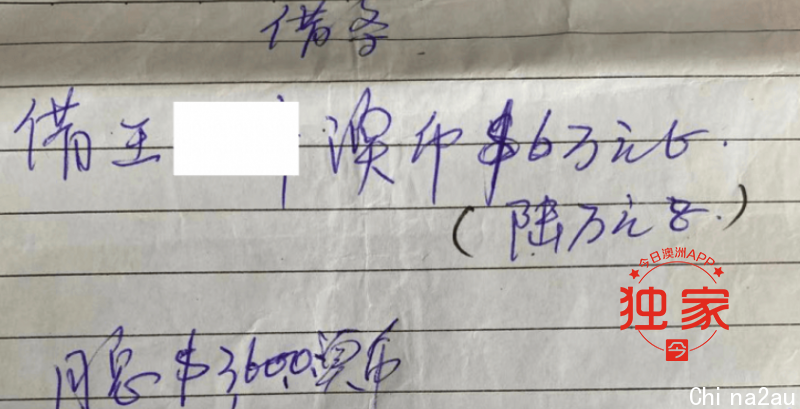 借条
借王 澳币$6万元正.
(陆万元正.)
月息$3,600澳币
今日澳洲APP
独家
今
Chi na2au